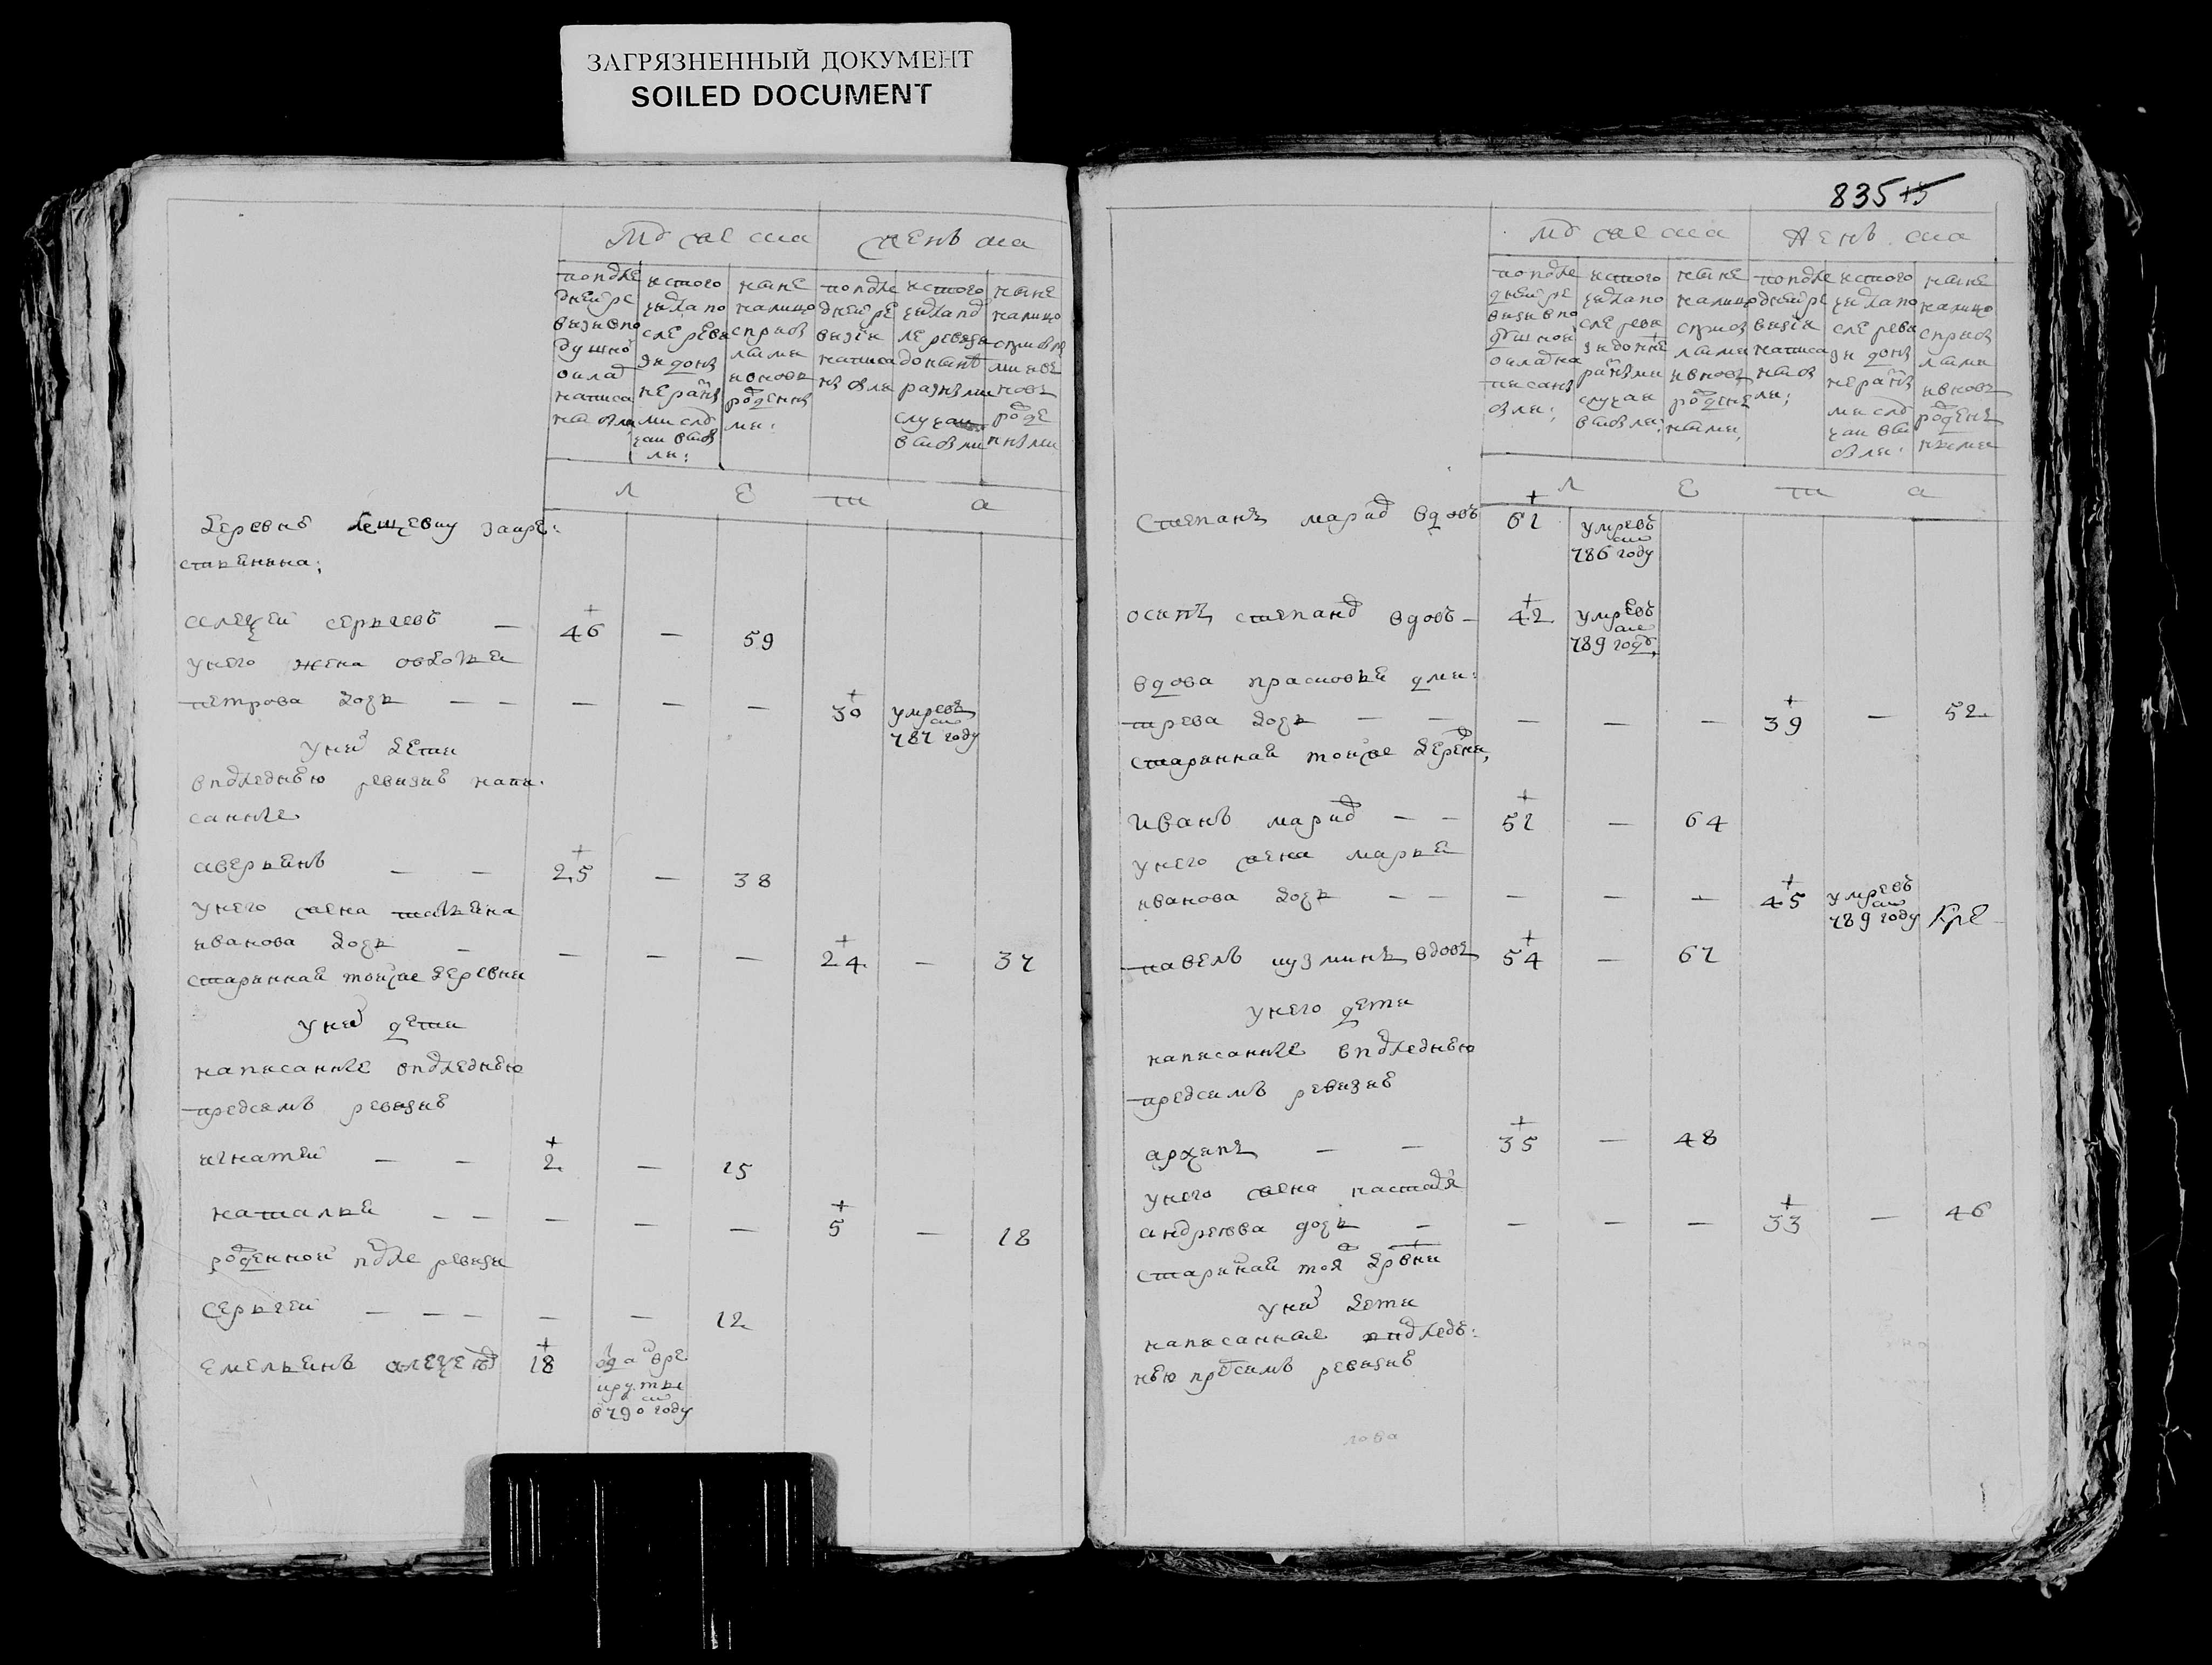 ЗАГРЯЗНЕННЫЙ ДОКУМЕНТ
SOILED DOCUMENT
Мужеска женска
попосле
дней ре
визи в по
душно
оклад
написа
ны были
ис того
числа по
сле реви
зи до нн
не разн
ми слу
чаи выб
ли:
ныне
на лицо
с прибы
лыми
и вновь
рожденн
ми:
по после
дней ре
визии
написа
ны были
ис того
числа пос
ле ревизи
до нынѣ
разными
случаи
выбыли
ныне
на лицо
с прибылы
ми и в
новь
рожде
нными
л е т а
деревнѣ крѣ:
стьянина:
алеѯей серьгеевъ — 46 — 59
у него жена овдотья
петрова дочь — — — — — 30 умре въ
787 году
у них дети
в последнѣю ревизиѣ напи
санные
аверьянъ — — 25 — 38
у него жена татьяна
иванова дочь — — — — 24 — 37
старинная той же деревни
у них дети
написанные в последнѣю
предсимъ ревизиѣ
игнатей — — 2 — 15
наталья — — — — — 5 — 18
рожденной после ревизи
серьгей — — — — — 12
емельянъ алеѯеев 18 отда в ре
круты
в 790 году
835
Мужеска женска
по после
дней ре
визи в по
душной
оклад на
писаны
были:
ис того
числа по
сле реви
зи до нне
разными
случаи
выбыли:
ныне
на лицо
с прибы
лыми
и вновь
рожден
ными,
по после
дней ре
визии
написа
ны бы
ли:
ис того
числа по
сле реви
зи до нн
не разн
ми слу
чаи вы
были:
ныне
на лицо
с прибы
лыми
и вновь
рожден
ными
л е т а
степанъ марков вдовъ 61 умре въ
786 году
осипъ степанов вдовъ — 42 умре въ
789 году,
вдова прасковья дми:
трева дочь — — — — — 39 — 52
старинная той же деревни,
иванъ марков — — 51 — 64
у него жена марья
иванова дочь — — — — — 45 умре въ
789 году
павелъ кузминъ вдовъ 54 — 67
у него дети
написанные в последнѣю
предсимъ ревизиѣ
архипъ — — 35 — 48
у него жена настасья
андреева дочь — — — — 33 — 46
старинная той деревни
у них дети
написанные в последѣ:
нѣю пред симъ ревизиѣ